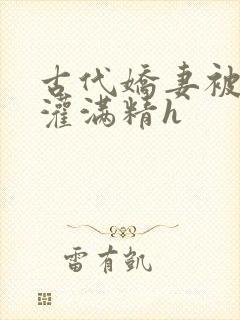 古代嬌妻被
灌滿精h
雷有凱